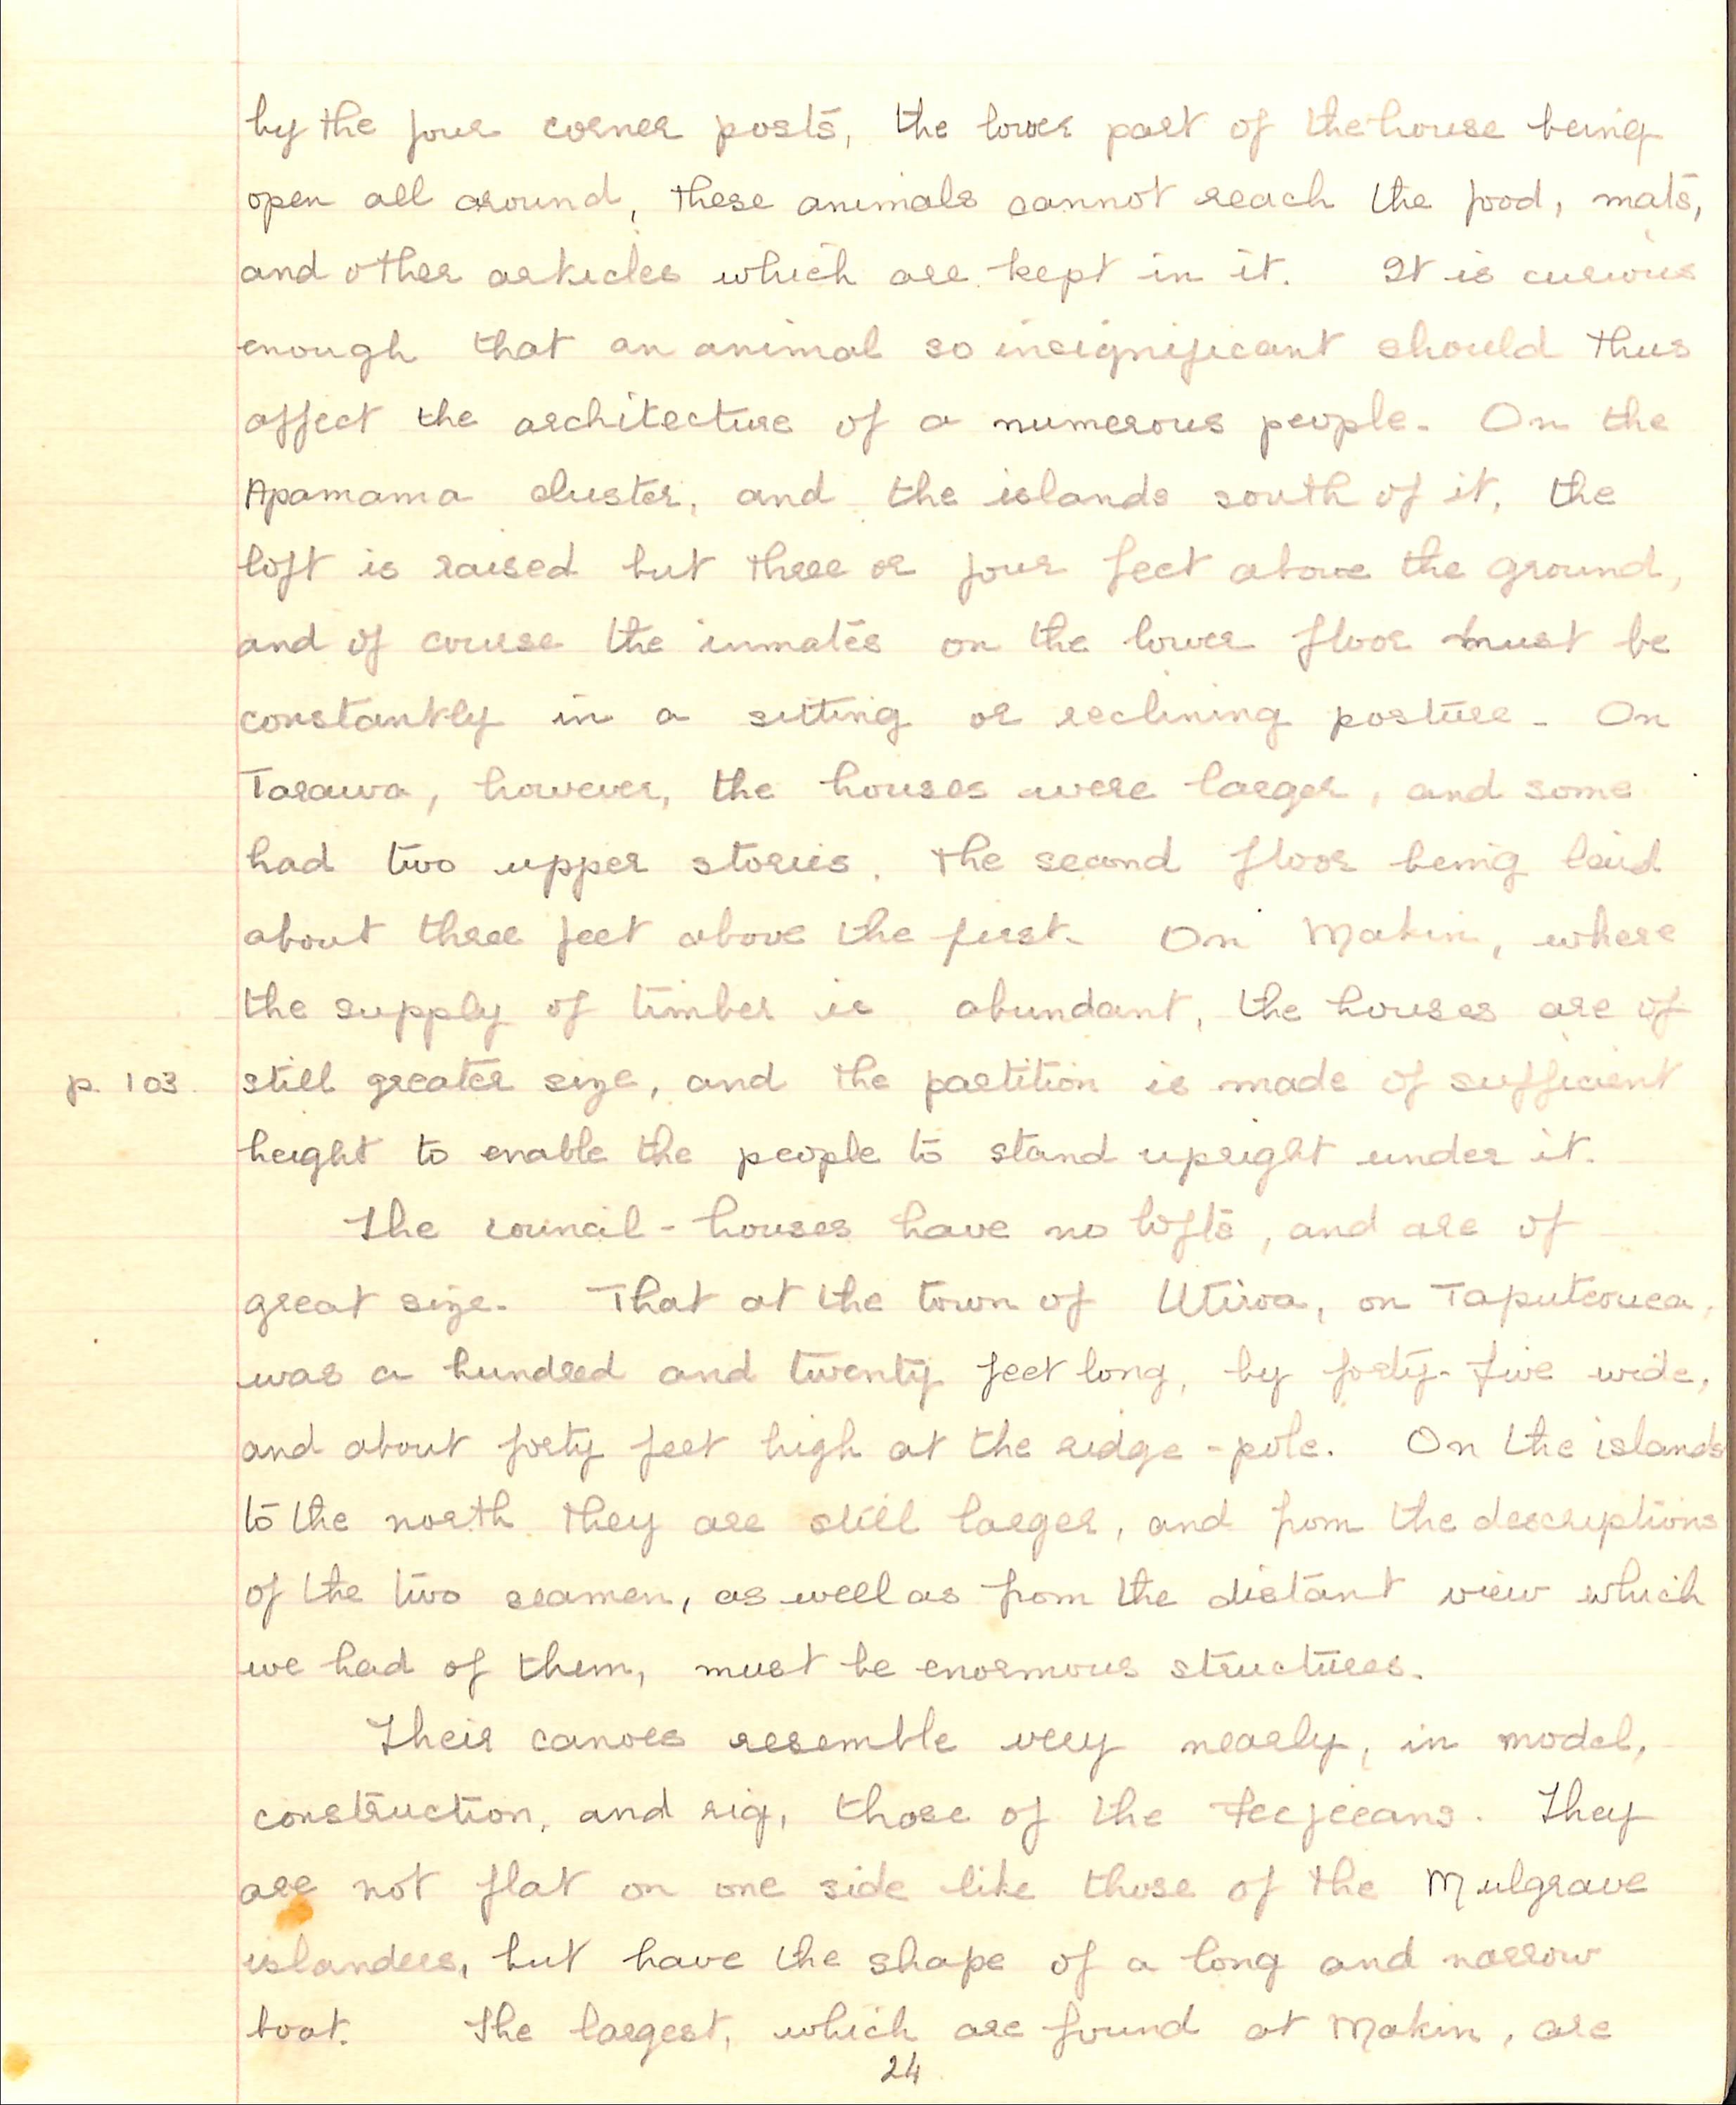 by the four corner posts, the lower part of the house being
open all around, these animals cannot reach the food, mats,
and other articles which are kept in it. It is curious
enough that an animal so insignificant should thus
affect the architecture of a numerous people. On the
Apamama cluster, and the islands south of it, the
loft is raised but three or four feet above the ground,
and of course the inmates on the lower floor must be
constantly in a sitting or reclining posture. On
Tarawa, however, the houses were larger, and some
had two upper stories, the second floor being laid
about three feet above the first. On Makin, where
the supply of timber is abundant, the houses are of
p. 103. still greater size, and the partition is made of sufficient
height to enable the people to stand upright under it.
The council-houses have no lofts, and are of
great size. That at the town of Utiroa, on Taputeouea,
was a hundred and twenty feet long, by forty-five wide,
and about forty feet high at the ridge-pole. On the islands
to the north they are still larger, and from the descriptions
of the two seamen, as well as from the distant view which
we had of them, must be enormous structures.
Their canoes resemble very nearly, in model,
construction, and rig, those of the Feejeeans. They
are not flat on one side like those of the Mulgrave
islanders, but have the shape of a long and narrow
boat. The largest, which are found at Makin, are
24